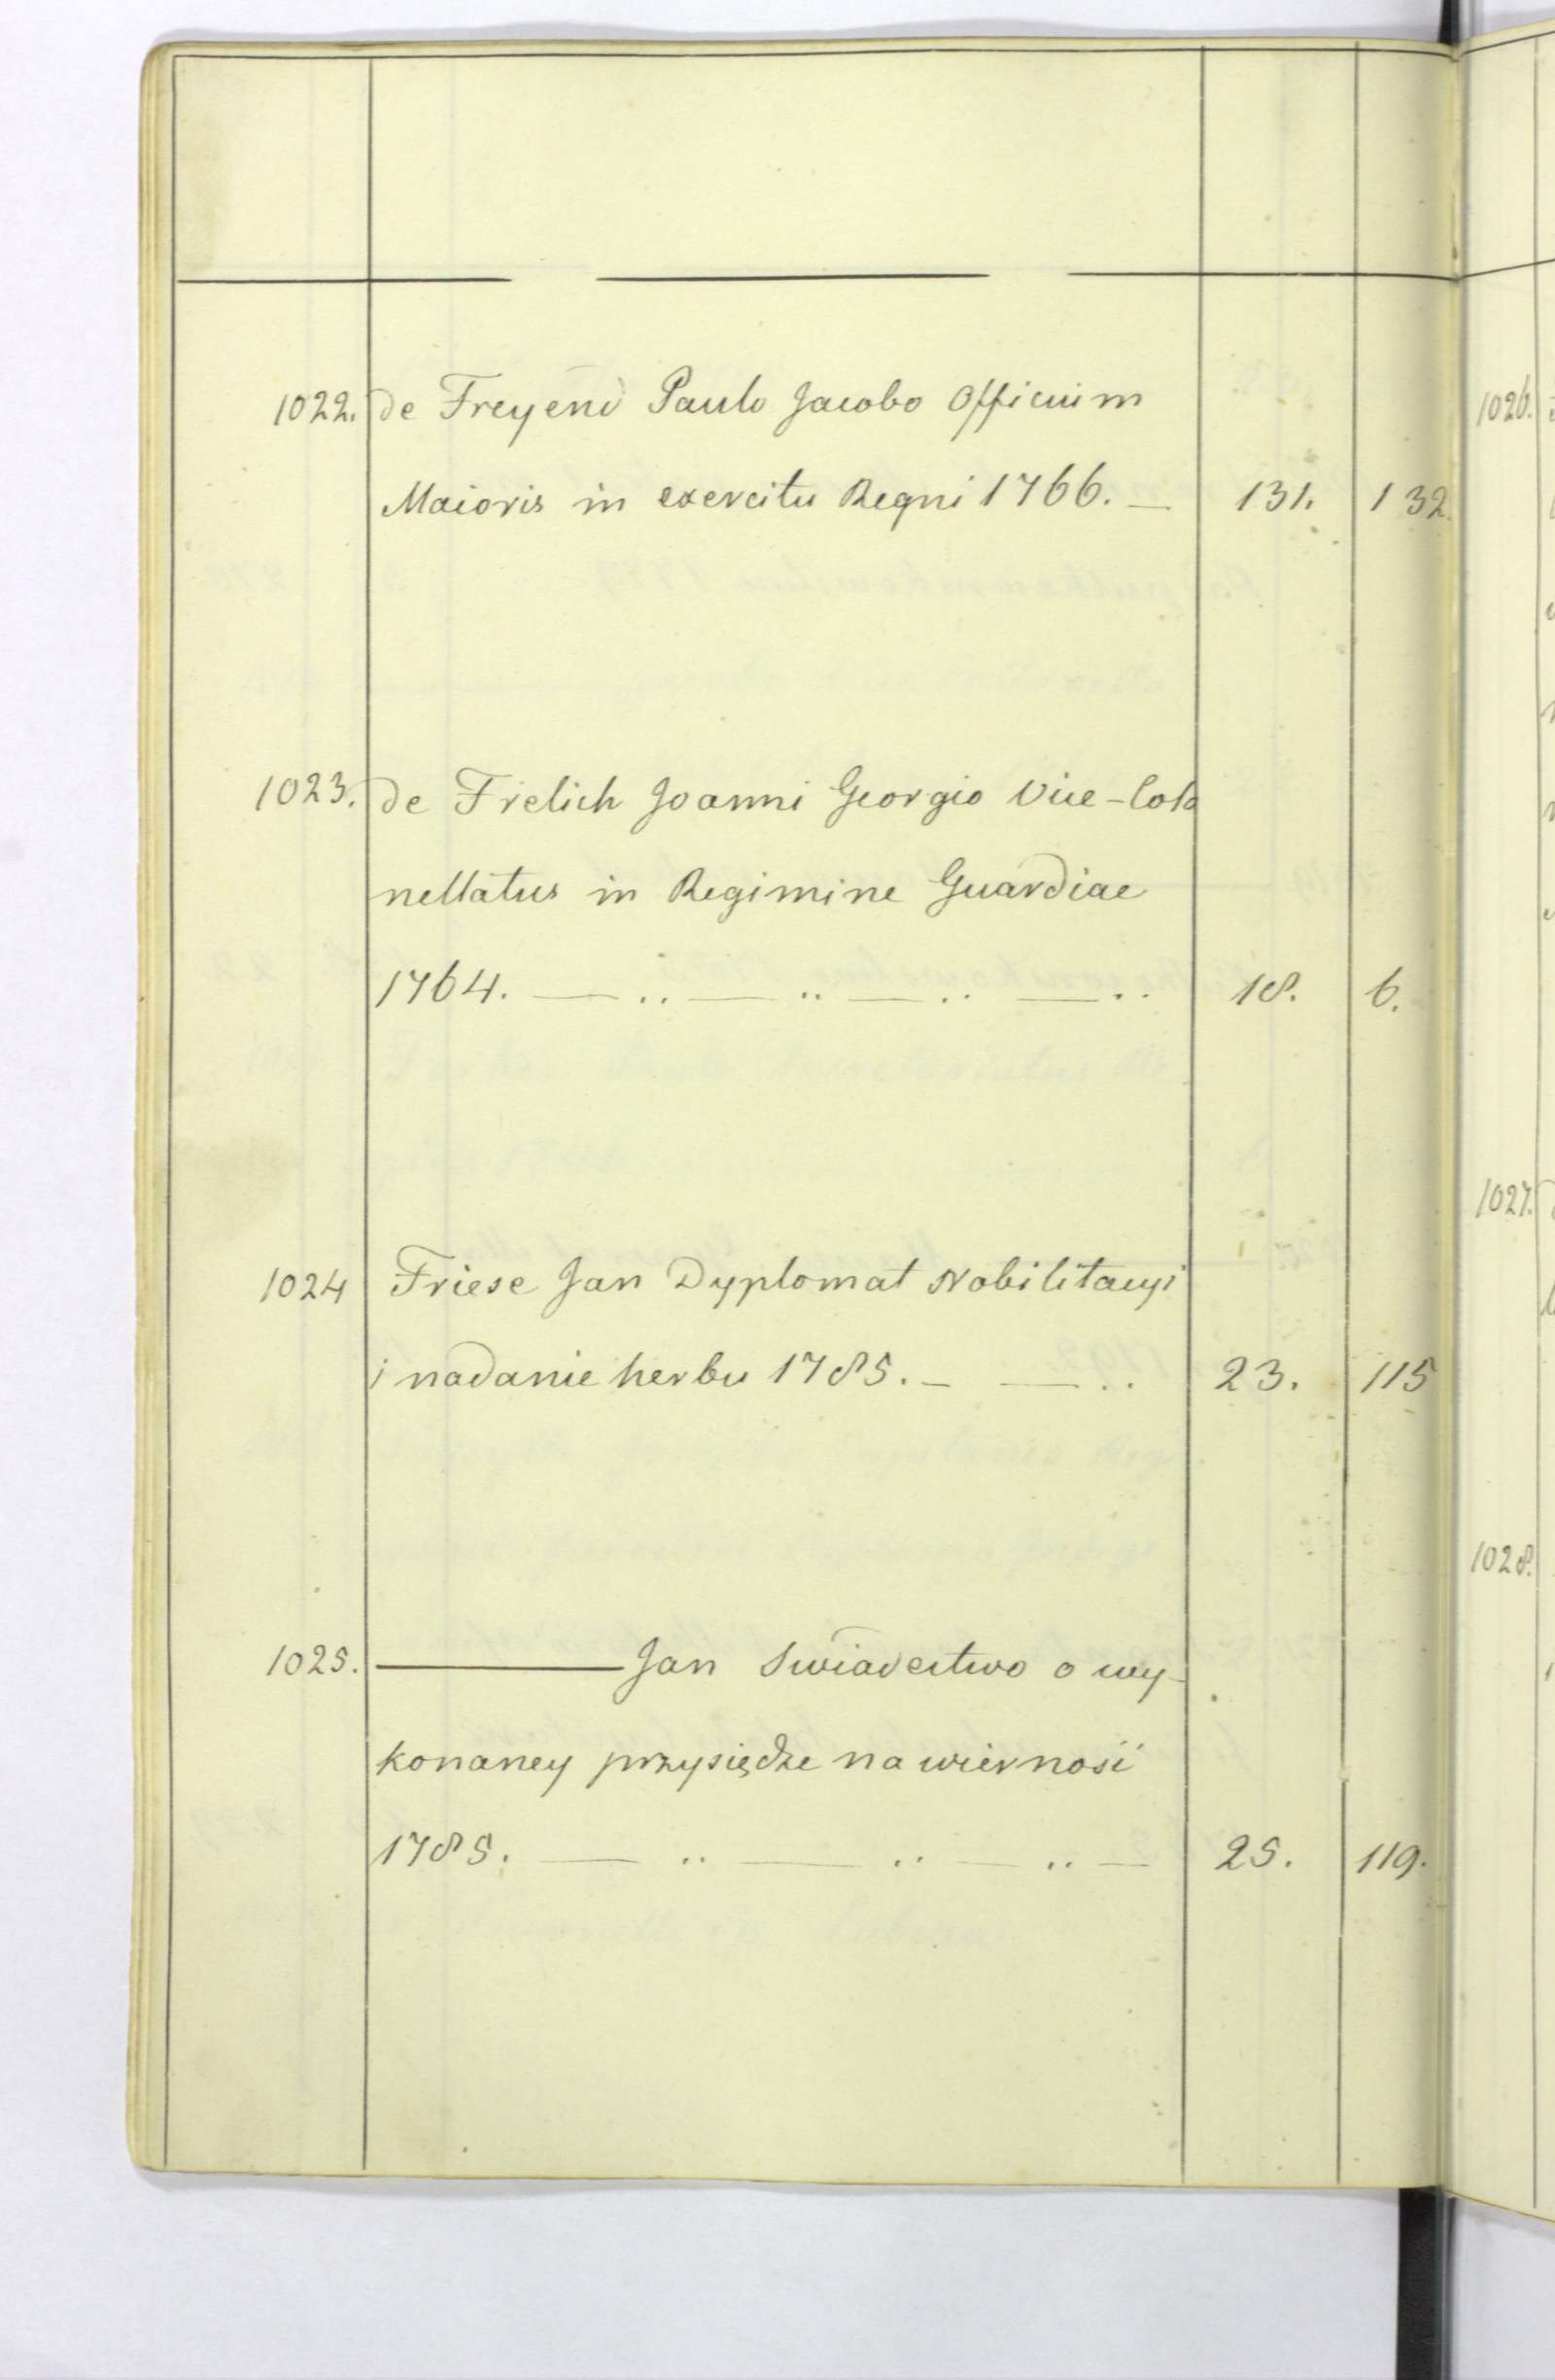 1022. de Freyend Paulo Jacobo Officium
Maioris in exercitu Regni 1766. — 131. 132.
1023. de Frelich Joanni Georgio Vice-Colo
nellatus in Regimine Guardiae
1764. — .. — .. — .. — .. 18. 6.
1024 Friese Jan Dyplomat Nobilitacyi
i nadanie herbu 1785. — — .. 23. 115
1025. ——— Jan Swiadectwo o wy-
konaney przysiędze na wierność
1785. — .. — .. — .. — 25. 119.
1026.
1027.
1028.